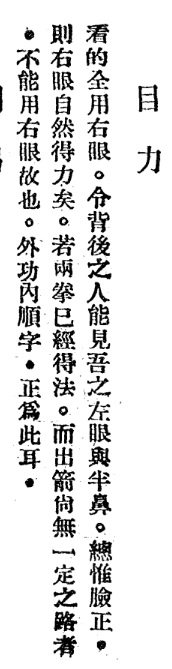 目力
看的全用右眼。令背後之人能見吾之左眼與半鼻。總惟臉正。
則右眼自然得力矣。若兩拳已經得法。而出箭尙無一定之路者
。不能用右眼故也。外功內順字。正爲此耳。